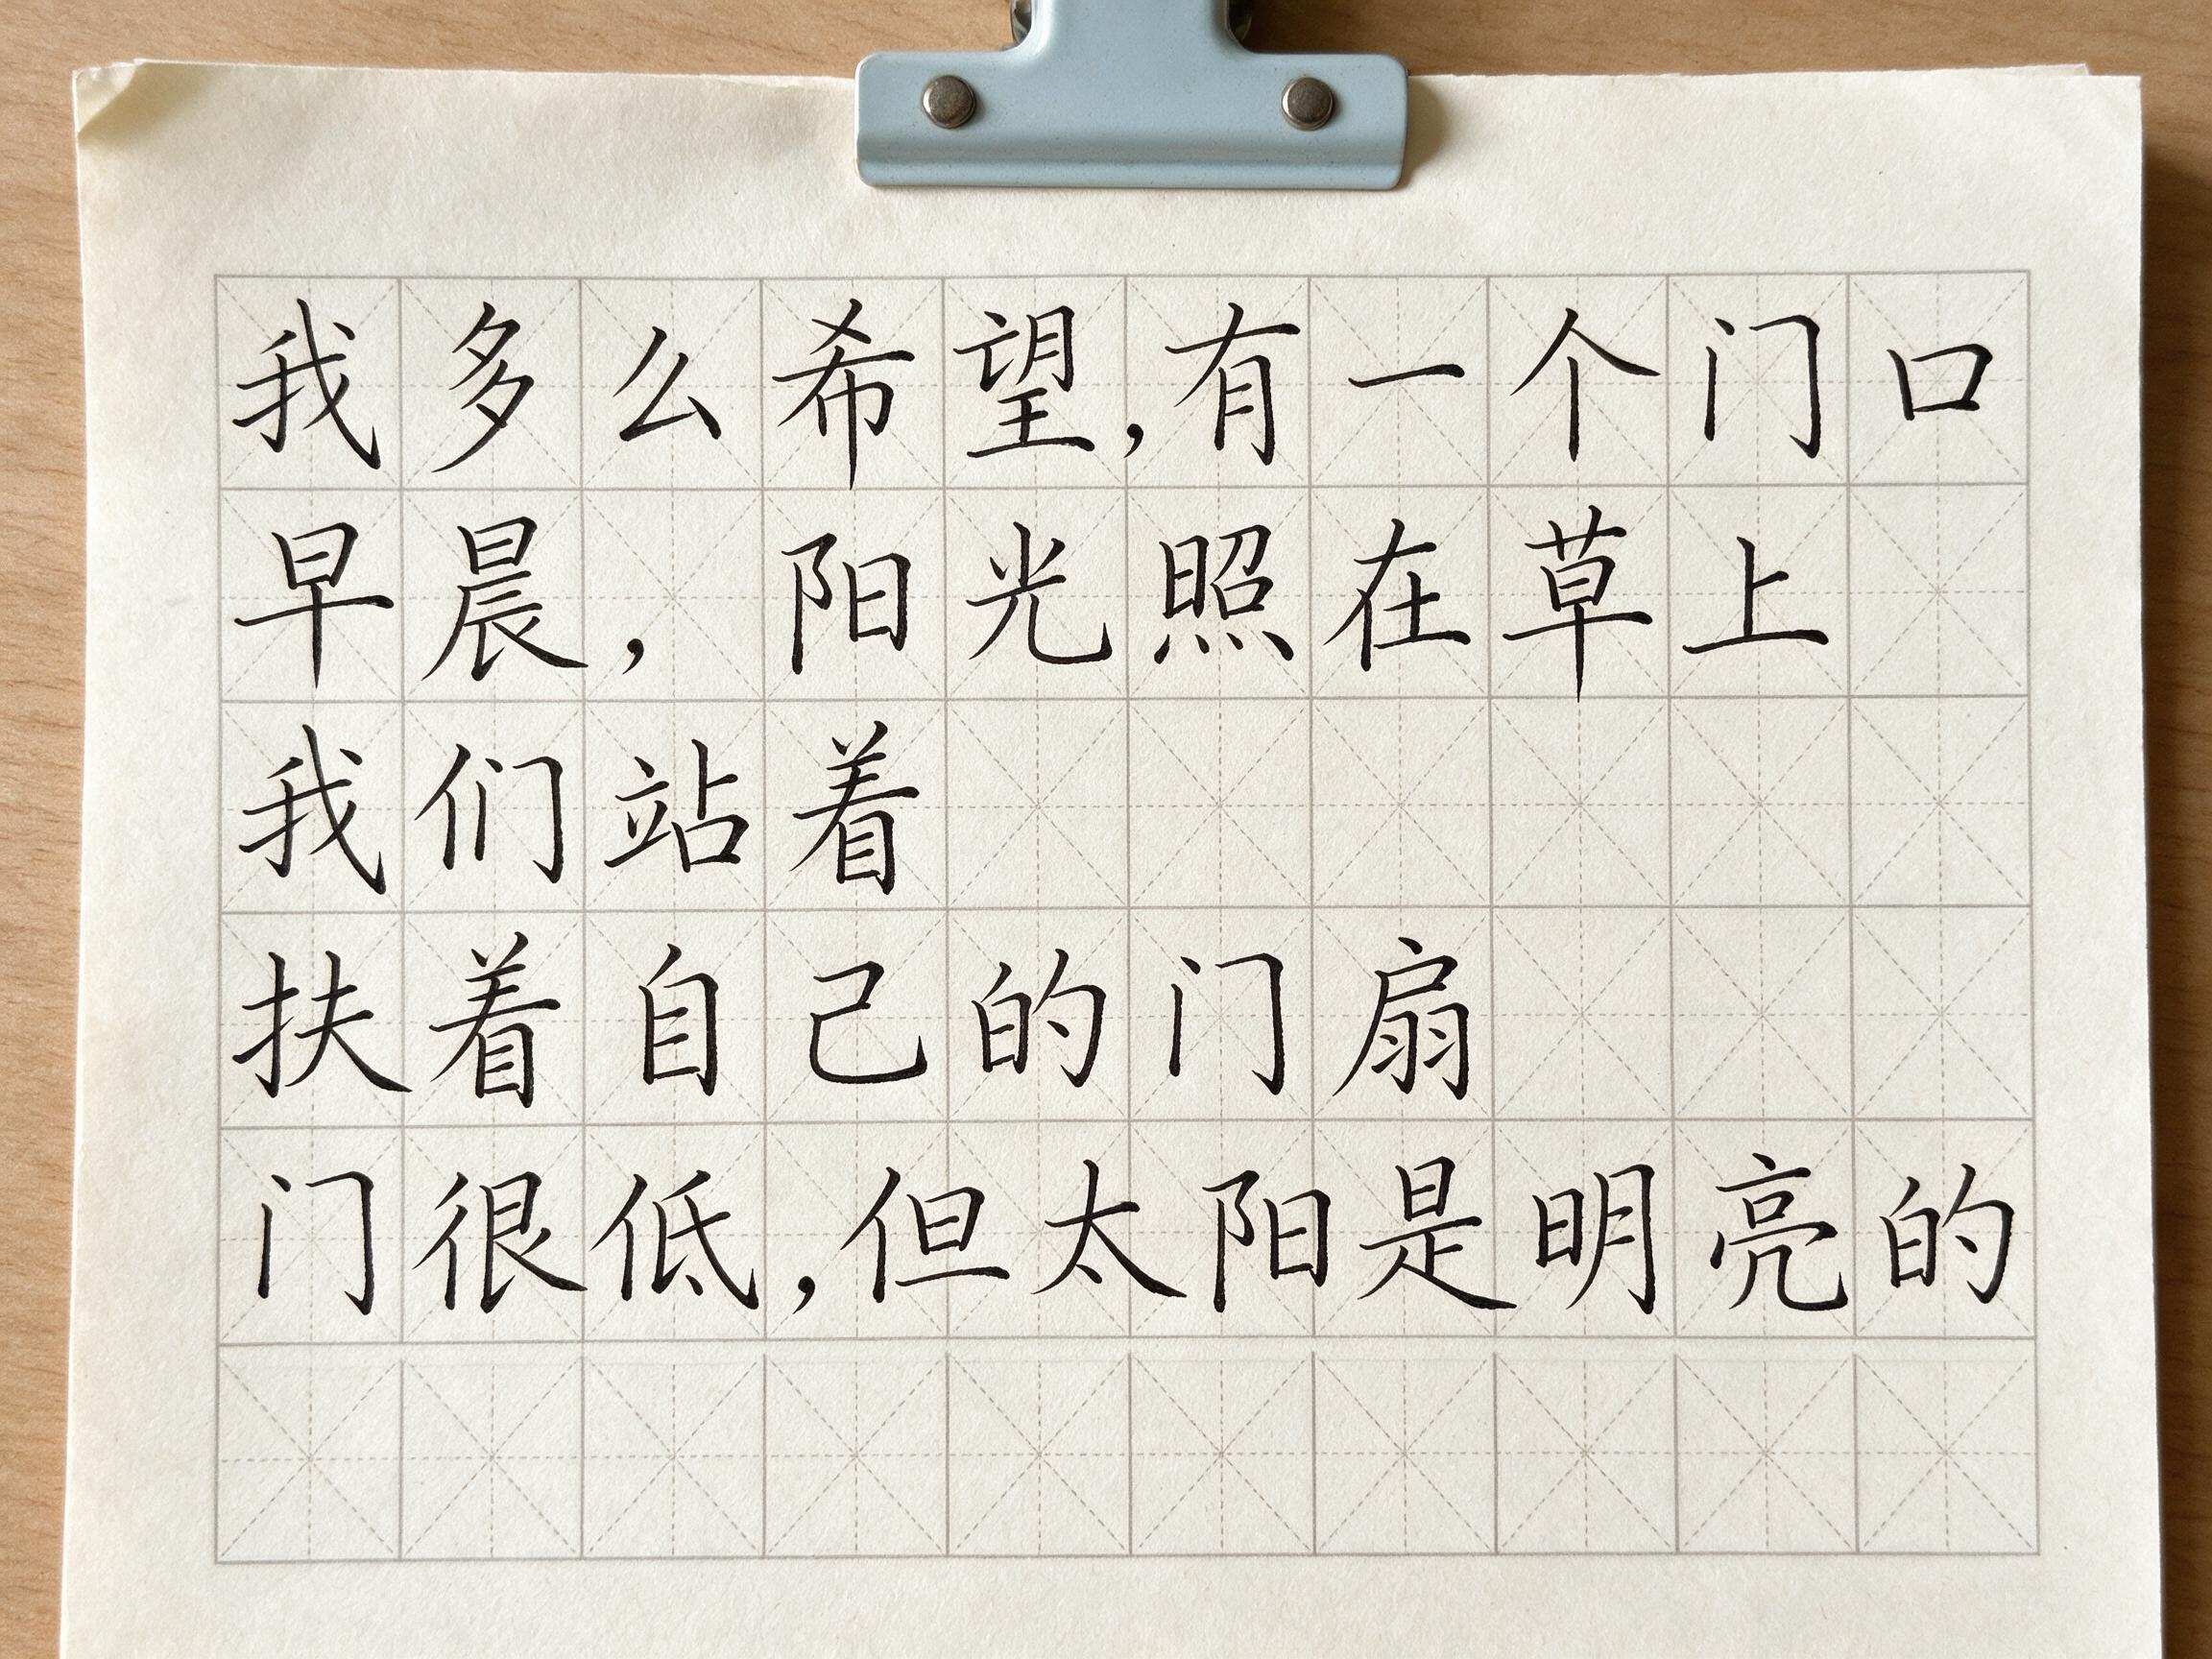 我多么希望,有一个门口
早晨，阳光照在草上
我们站着
扶着自己的门扇
门很低,但太阳是明亮的